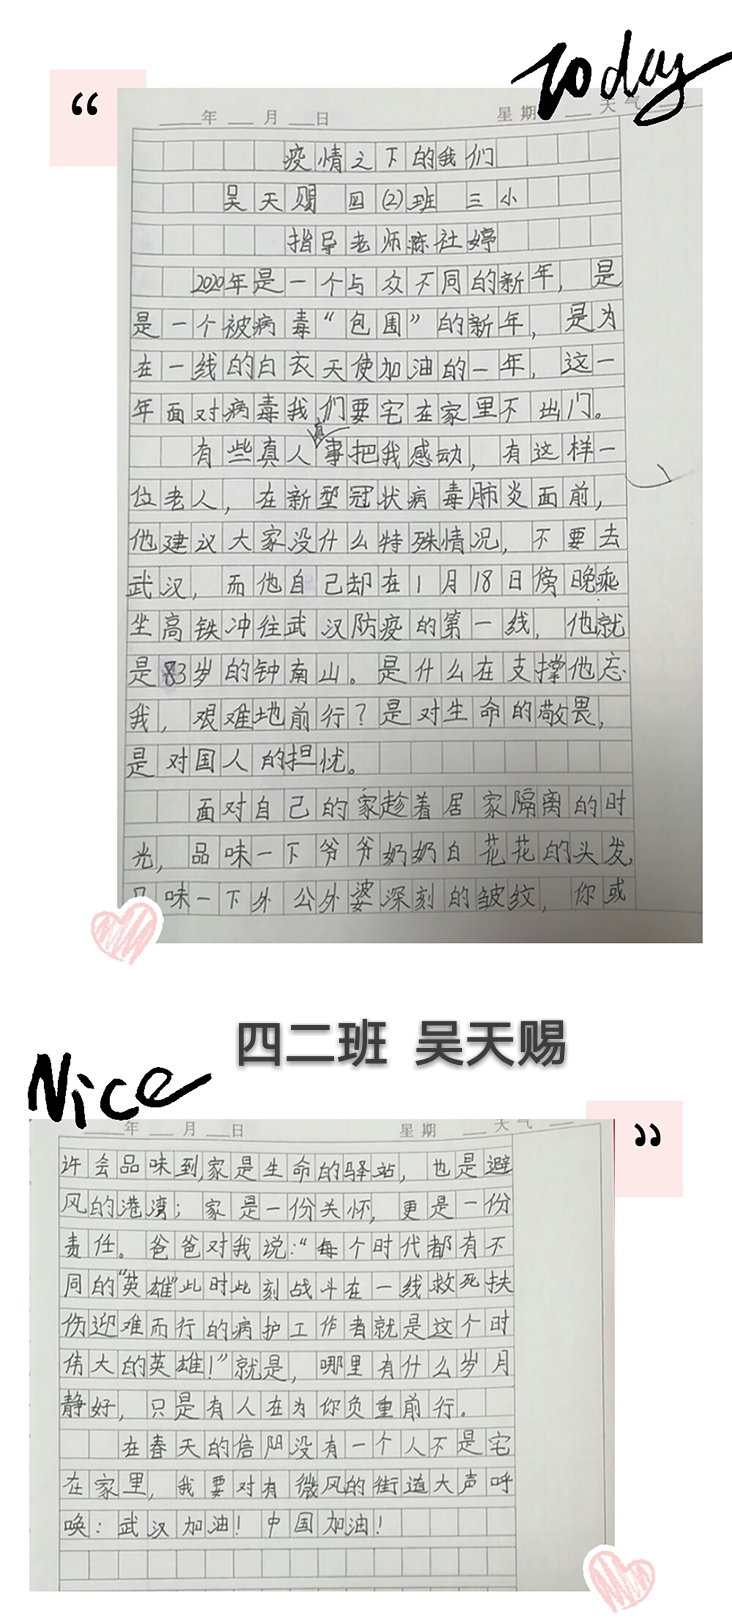 Today
“
年 月 日 星期 天气
疫情之下的我们
吴天赐 四(2)班 三小
指导老师陈社婷
2020年是一个与众不同的新年，是
是一个被病毒“包围”的新年，是为
在一线的白衣天使加油的一年，这一
年面对病毒我们要宅在家里不出门。
有些真人真事把我感动，有这样一
位老人，在新型冠状病毒肺炎面前，
他建议大家没什么特殊情况，不要去
武汉，而他自己却在1月18日傍晚乘
坐高铁冲往武汉防疫的第一线，他就
是83岁的钟南山。是什么在支撑他忘
我，艰难地前行？是对生命的敬畏，
是对国人的担忧。
面对自己的家趁着居家隔离的时
光，品味一下爷爷奶奶白花花的头发，
味一下外公外婆深刻的皱纹，你或
四二班 吴天赐
Nice
”
年 月 日 星期 天气
许会品味到，家是生命的驿站，也是避
风的港湾；家是一份关怀，更是一份
责任。爸爸对我说：“每个时代都有不
同的“英雄”此时此刻战斗在一线救死扶
伤迎难而行的病护工作者就是这个时
伟大的英雄！”就是，哪里有什么岁月
静好，只是有人在为你负重前行。
在春天的信阳没有一个人不是宅
在家里，我要对有微风的街道大声呼
唤：武汉加油！中国加油！